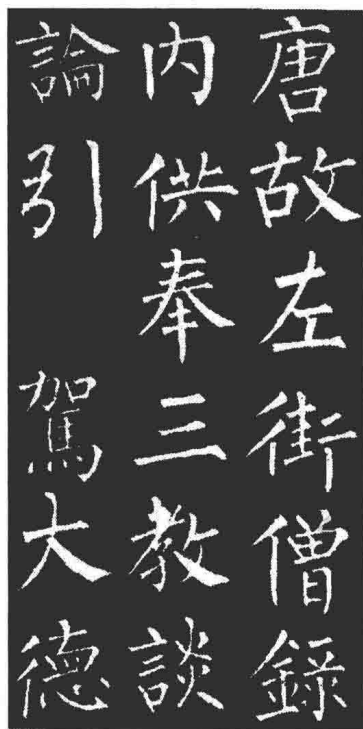 唐故左街僧錄
內供奉三教談
論引駕大德